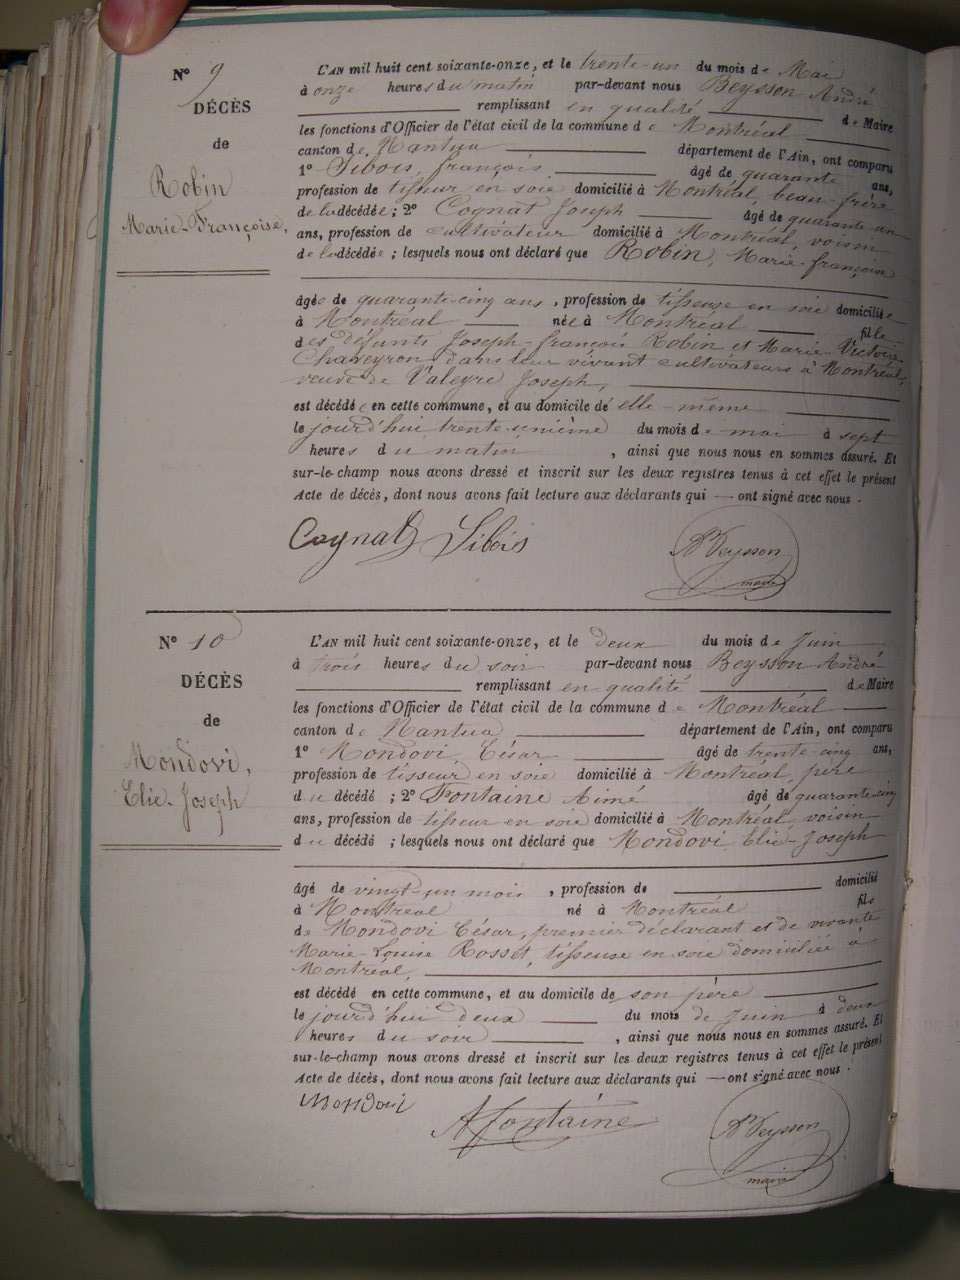 N° 9
DÉCÈS
de
Robin
Marie-Françoise,
L'AN mil huit cent soixante-onze, et le trente-un du mois de Mai
à onze heures du matin par-devant nous Beysson André
remplissant en qualité de Maire
les fonctions d'Officier de l'état civil de la commune de Montréal
canton de Nantua département de l'Ain, ont comparu
1° Sibois, françois âgé de quarante ans,
profession de tisseur en soie domicilié à Montréal, beau-frère
de la décédée ; 2° Cognat Joseph âgé de quarante-un
ans, profession de cultivateur domicilié à Montréal, voisin
de la décédée ; lesquels nous ont déclaré que Robin, Marie-françoise
âgée de quarante-cinq ans, profession de tisseuse en soie domiciliée
à Montréal née à Montréal fille
des défunts Joseph-françois Robin et Marie-Victoire
Chaneyron dans leur vivant cultivateurs à Montréal,
veuve de Valeyre Joseph,
est décédée en cette commune, et au domicile de elle-même
le jourd'hui trente-unième du mois de mai à sept
heures du matin, ainsi que nous nous en sommes assuré. Et
sur-le-champ nous avons dressé et inscrit sur les deux registres tenus à cet effet le présent
Acte de décès, dont nous avons fait lecture aux déclarants qui — ont signé avec nous.
Cognat Sibois ABeysson
maire
N° 10
DÉCÈS
de
Mondovi,
Elie-Joseph
L'AN mil huit cent soixante-onze, et le deux du mois de Juin
à trois heures du soir par-devant nous Beysson André
remplissant en qualité de Maire
les fonctions d'Officier de l'état civil de la commune de Montréal
canton de Nantua département de l'Ain, ont comparu
1° Mondovi, César âgé de trente-cinq ans,
profession de tisseur en soie domicilié à Montréal, père
du décédé ; 2° Fontaine Aimé âgé de quarante-cinq
ans, profession de tisseur en soie domicilié à Montréal, voisin
du décédé ; lesquels nous ont déclaré que Mondovi Elie-Joseph
âgé de vingt-un mois, profession de domicilié
à Montréal né à Montréal fils
de Mondovi César, premier déclarant et de vivante
Marie-Louise Rosset, tisseuse en soie domiciliée à
Montréal,
est décédé en cette commune, et au domicile de son père
le jourd'hui deux du mois de Juin à deux
heures du soir, ainsi que nous nous en sommes assuré. Et
sur-le-champ nous avons dressé et inscrit sur les deux registres tenus à cet effet le présent
Acte de décès, dont nous avons fait lecture aux déclarants qui — ont signé avec nous.
Mondovi AFontaine ABeysson
maire